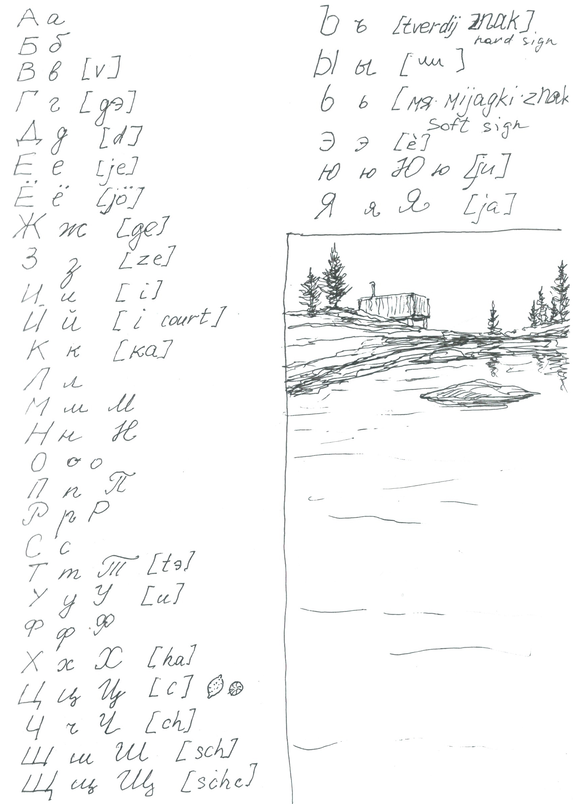 А а
Б б
В в [v]
Г г [gэ]
Д д [d]
Е е [je]
Ё ё [jö]
Ж ж [ge]
З з [ze]
И и [i]
Й й [i court]
К к [ка]
Л л
М м М
Н н Н
О о о
П п П
Р р Р
С с
Т т Т [tэ]
У у У [u]
Ф ф Ф
Х х Х [ha]
Ц ц Ц [c]
Ч ч Ч [ch]
Ш ш Ш [sch]
Щ щ Щ [schc]
Ъ ъ [tverdij znak]
hard sign
Ы ы
Ь ь [мя mijagki znak
soft sign
Э э [è]
Ю ю Ю ю [ju]
Я я Я [ja]